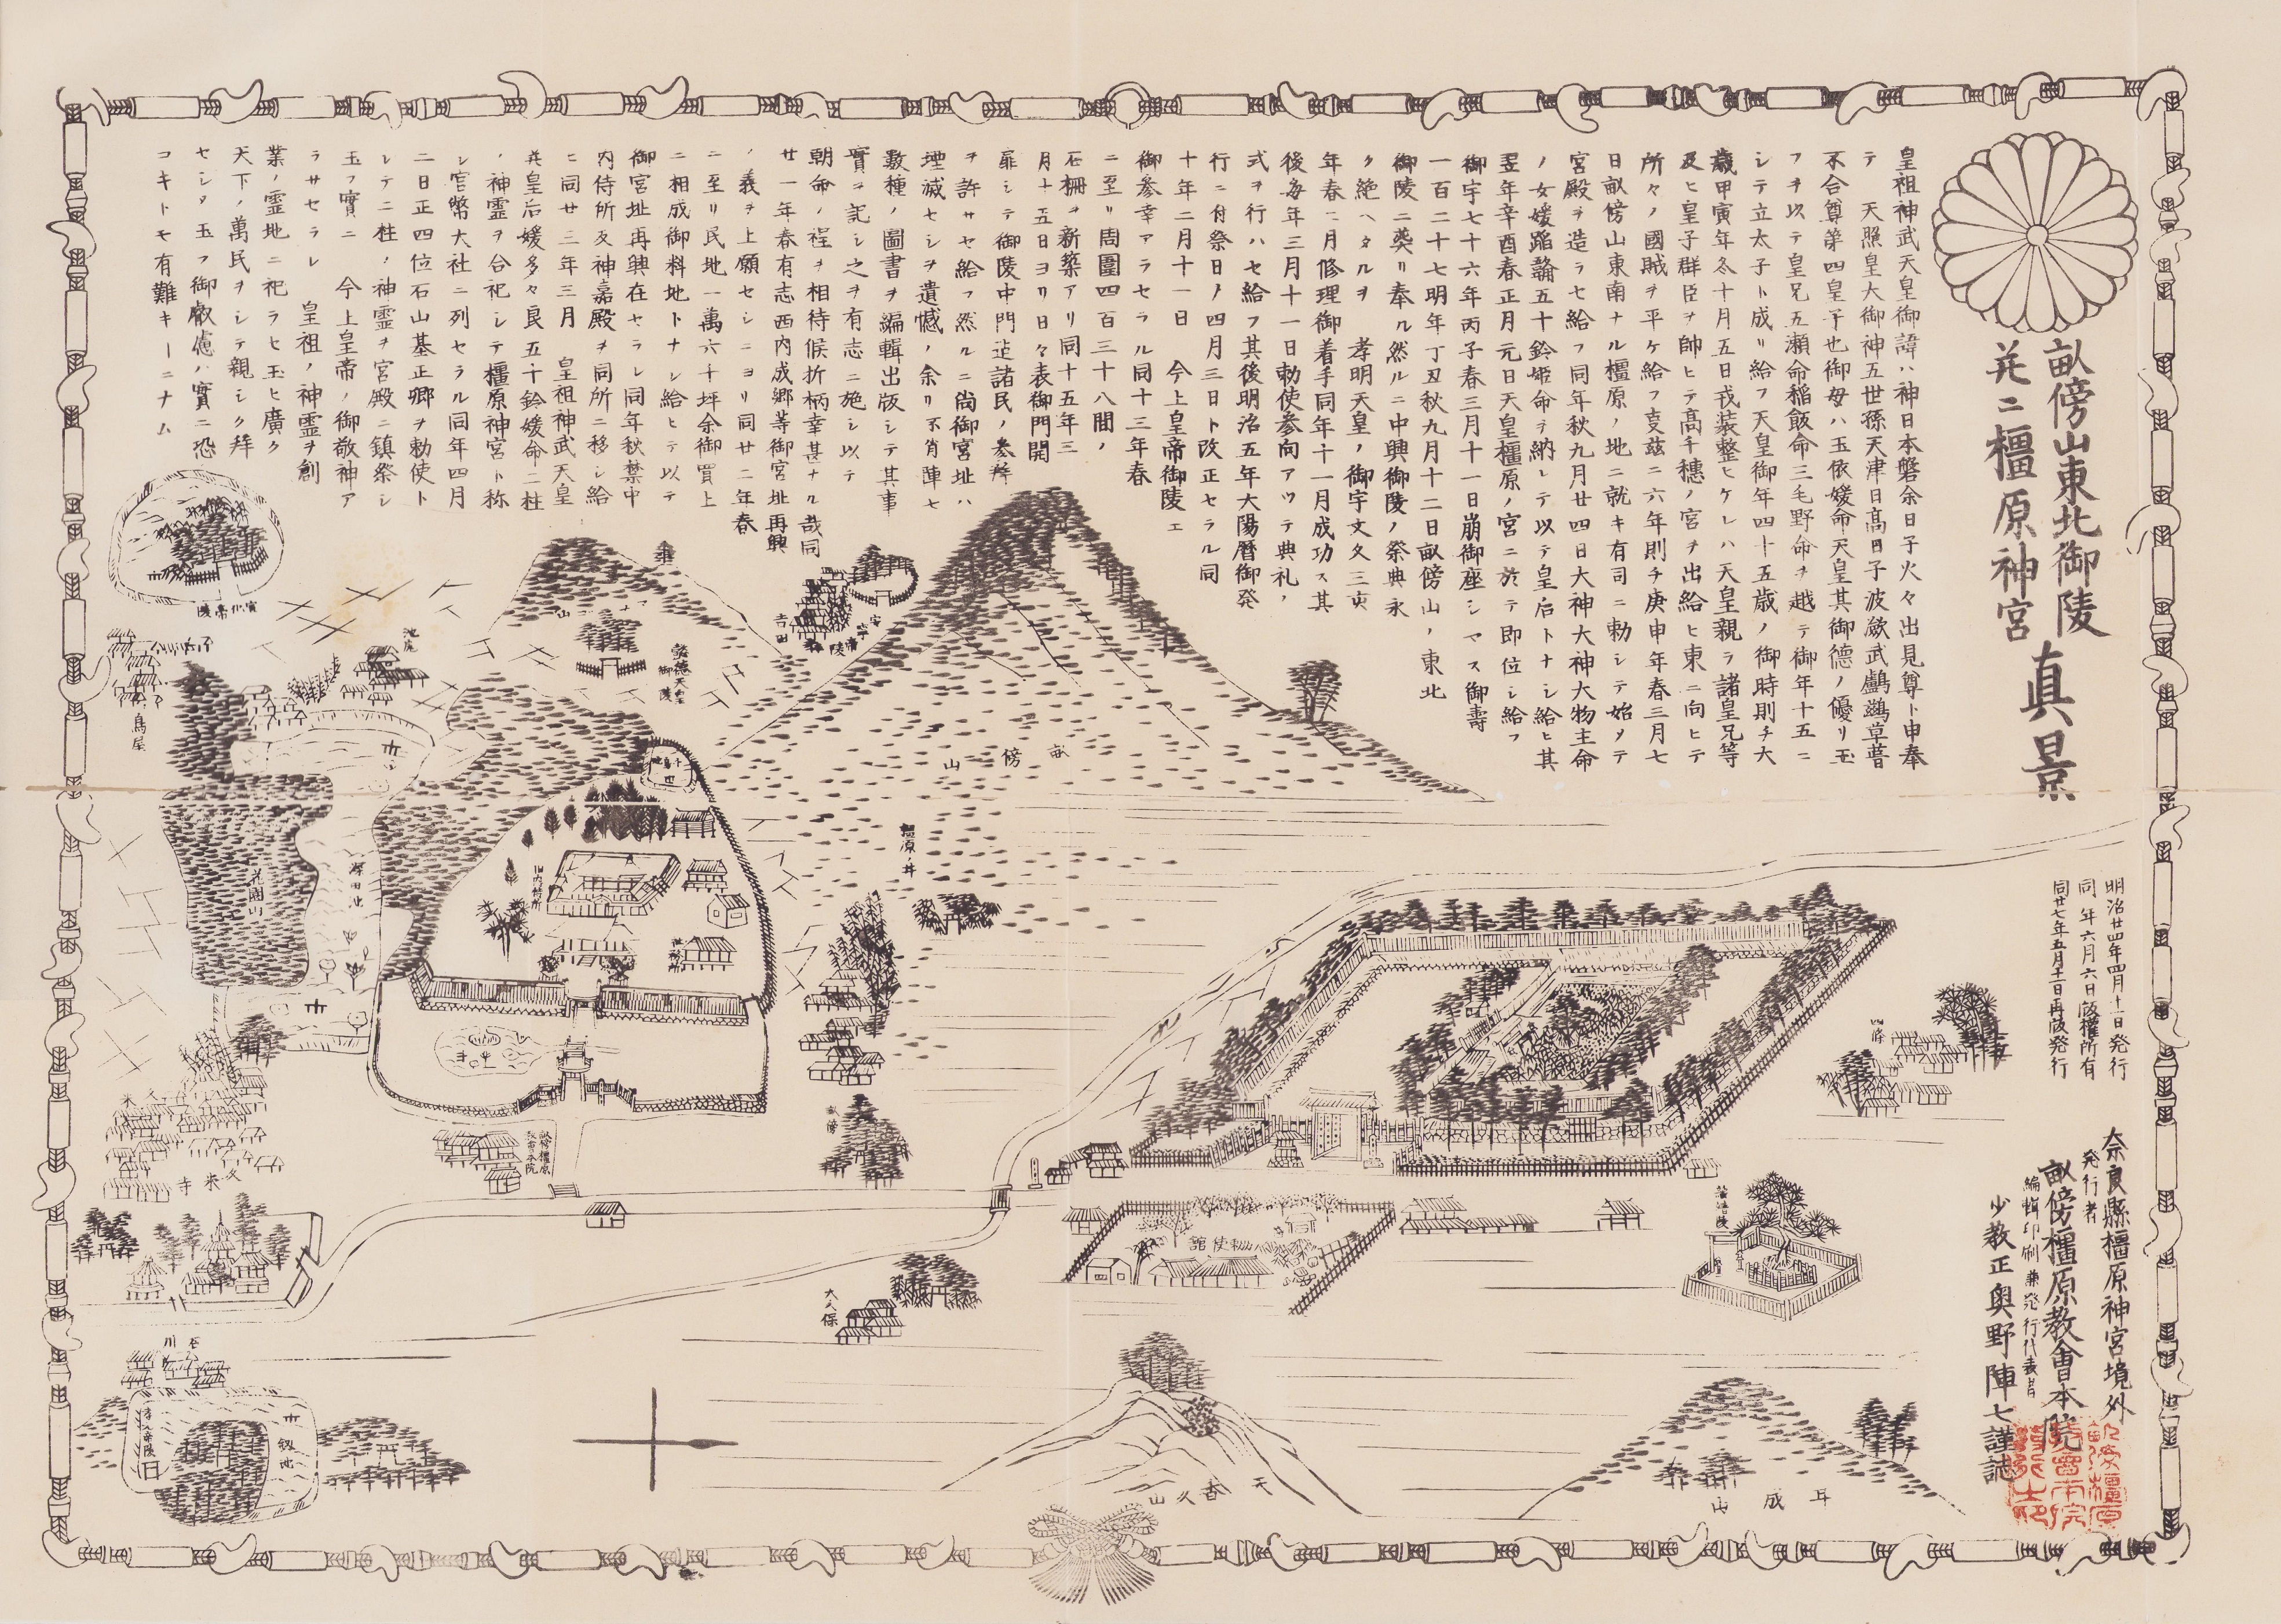 畝傍山東北御陵
並ニ橿原神宮
真景
皇祖神武天皇御諱ハ神日本磐余日子火々出見尊ト申奉
テ 天照皇大御神五世孫天津日高日子波瀲武鸕鷀草葺
不合尊第四皇子也御母ハ玉依媛命天皇其御德ノ優リ玉
フヲ以テ皇兄五瀬命稲飯命三毛野命ヲ越テ御年十五ニ
シテ立太子ト成リ給フ天皇御年四十五歳ノ御時則チ大
歳甲寅年冬十月五日戎装整ヒケレハ天皇親ラ諸皇兄等
及ヒ皇子群臣ヲ帥ヒテ高千穗ノ宮ヲ出給ヒ東ニ向ヒテ
所々ノ國賊ヲ平ケ給フ爰茲ニ六年則チ庚申年春三月七
日畝傍山東南ナル橿原ノ地ニ就キ有司ニ勅シテ始メテ
宮殿ヲ造ラセ給フ同年秋九月廿四日大神大神大物主命
ノ女媛蹈鞴五十鈴姫命ヲ納レテ以テ皇后トナシ給ヒ其
翌年辛酉春正月元日天皇橿原ノ宮ニ於テ即位シ給フ
御宇七十六年丙子春三月十一日崩御座シマス御壽
一百二十七明年丁丑秋九月十二日畝傍山ノ東北
御陵ニ葬リ奉ル然ルニ中興御陵ノ祭典永
ク絶ヘタルヲ 孝明天皇ノ御宇文久三亥
年春二月修理御着手同年十一月成功ス其
後毎年三月十一日勅使参向アツテ典礼ノ
式ヲ行ハセ給フ其後明治五年大陽暦御発
行ニ付祭日ノ四月三日ト改正セラル同
十年二月十一日 今上皇帝御陵エ
御参幸アラセラル同十三年春
ニ至リ周圍四百三十八間ノ
石柵ヲ新築アリ同十五年三
月十五日ヨリ日々表御門開
扉シテ御陵中門迠諸民ノ参拜
ヲ許サセ給フ然ルニ尚御宮址ハ
堙滅セシヲ遺憾ノ余リ不肖陣七
数種ノ圖書ヲ編輯出版シテ其事
實ヲ記シ之ヲ有志ニ施シ以テ
朝命ノ程ヲ相待候折柄幸甚ナル哉同
廿一年春有志西内成郷等御宮址再興
ノ義ヲ上願セシニヨリ同廿二年春
ニ至リ民地一萬六千坪余御買上
ニ相成御料地トナシ給ヒテ以テ
御宮址再興在セラレ同年秋禁中
内侍所及神嘉殿ヲ同所ニ移シ給
ヒ同廿三年三月 皇祖神武天皇
並皇后媛多々良五十鈴媛命二柱
ノ神霊ヲ合祀シテ橿原神宮ト称
シ官幣大社ニ列セラル同年四月
二日正四位石山基正卿ヲ勅使ト
シテ二柱ノ神霊ヲ宮殿ニ鎮祭シ
玉フ實ニ 今上皇帝ノ御敬神ア
ラサセラレ 皇祖ノ神霊ヲ創
業ノ霊地ニ祀ラヒ玉ヒ廣ク
天下ノ萬民ヲシテ親シク拜
セシメ玉フ御叡慮ノ實ニ恐
コキトモ有難キーニナム
明治廿四年四月十一日発行
同年六月六日版權所有
同廿七年五月十一日再版発行
奈良縣橿原神宮境外
発行者
畝傍橿原教會本院
編輯印刷兼発行代表者
少教正奥野陣七謹誌
宣化帝陵
鳥屋
池尻
懿徳天皇
御陵
吉田
安寧帝陵
畝傍山
橿原ノ井
旧内侍所
花園山
深田池
久米
久米寺
畝傍橿原
教會本院
畝傍
大久保
勅使館
四條
綏靖陵
石川
剱池
孝元帝陵
天香久山
耳成山